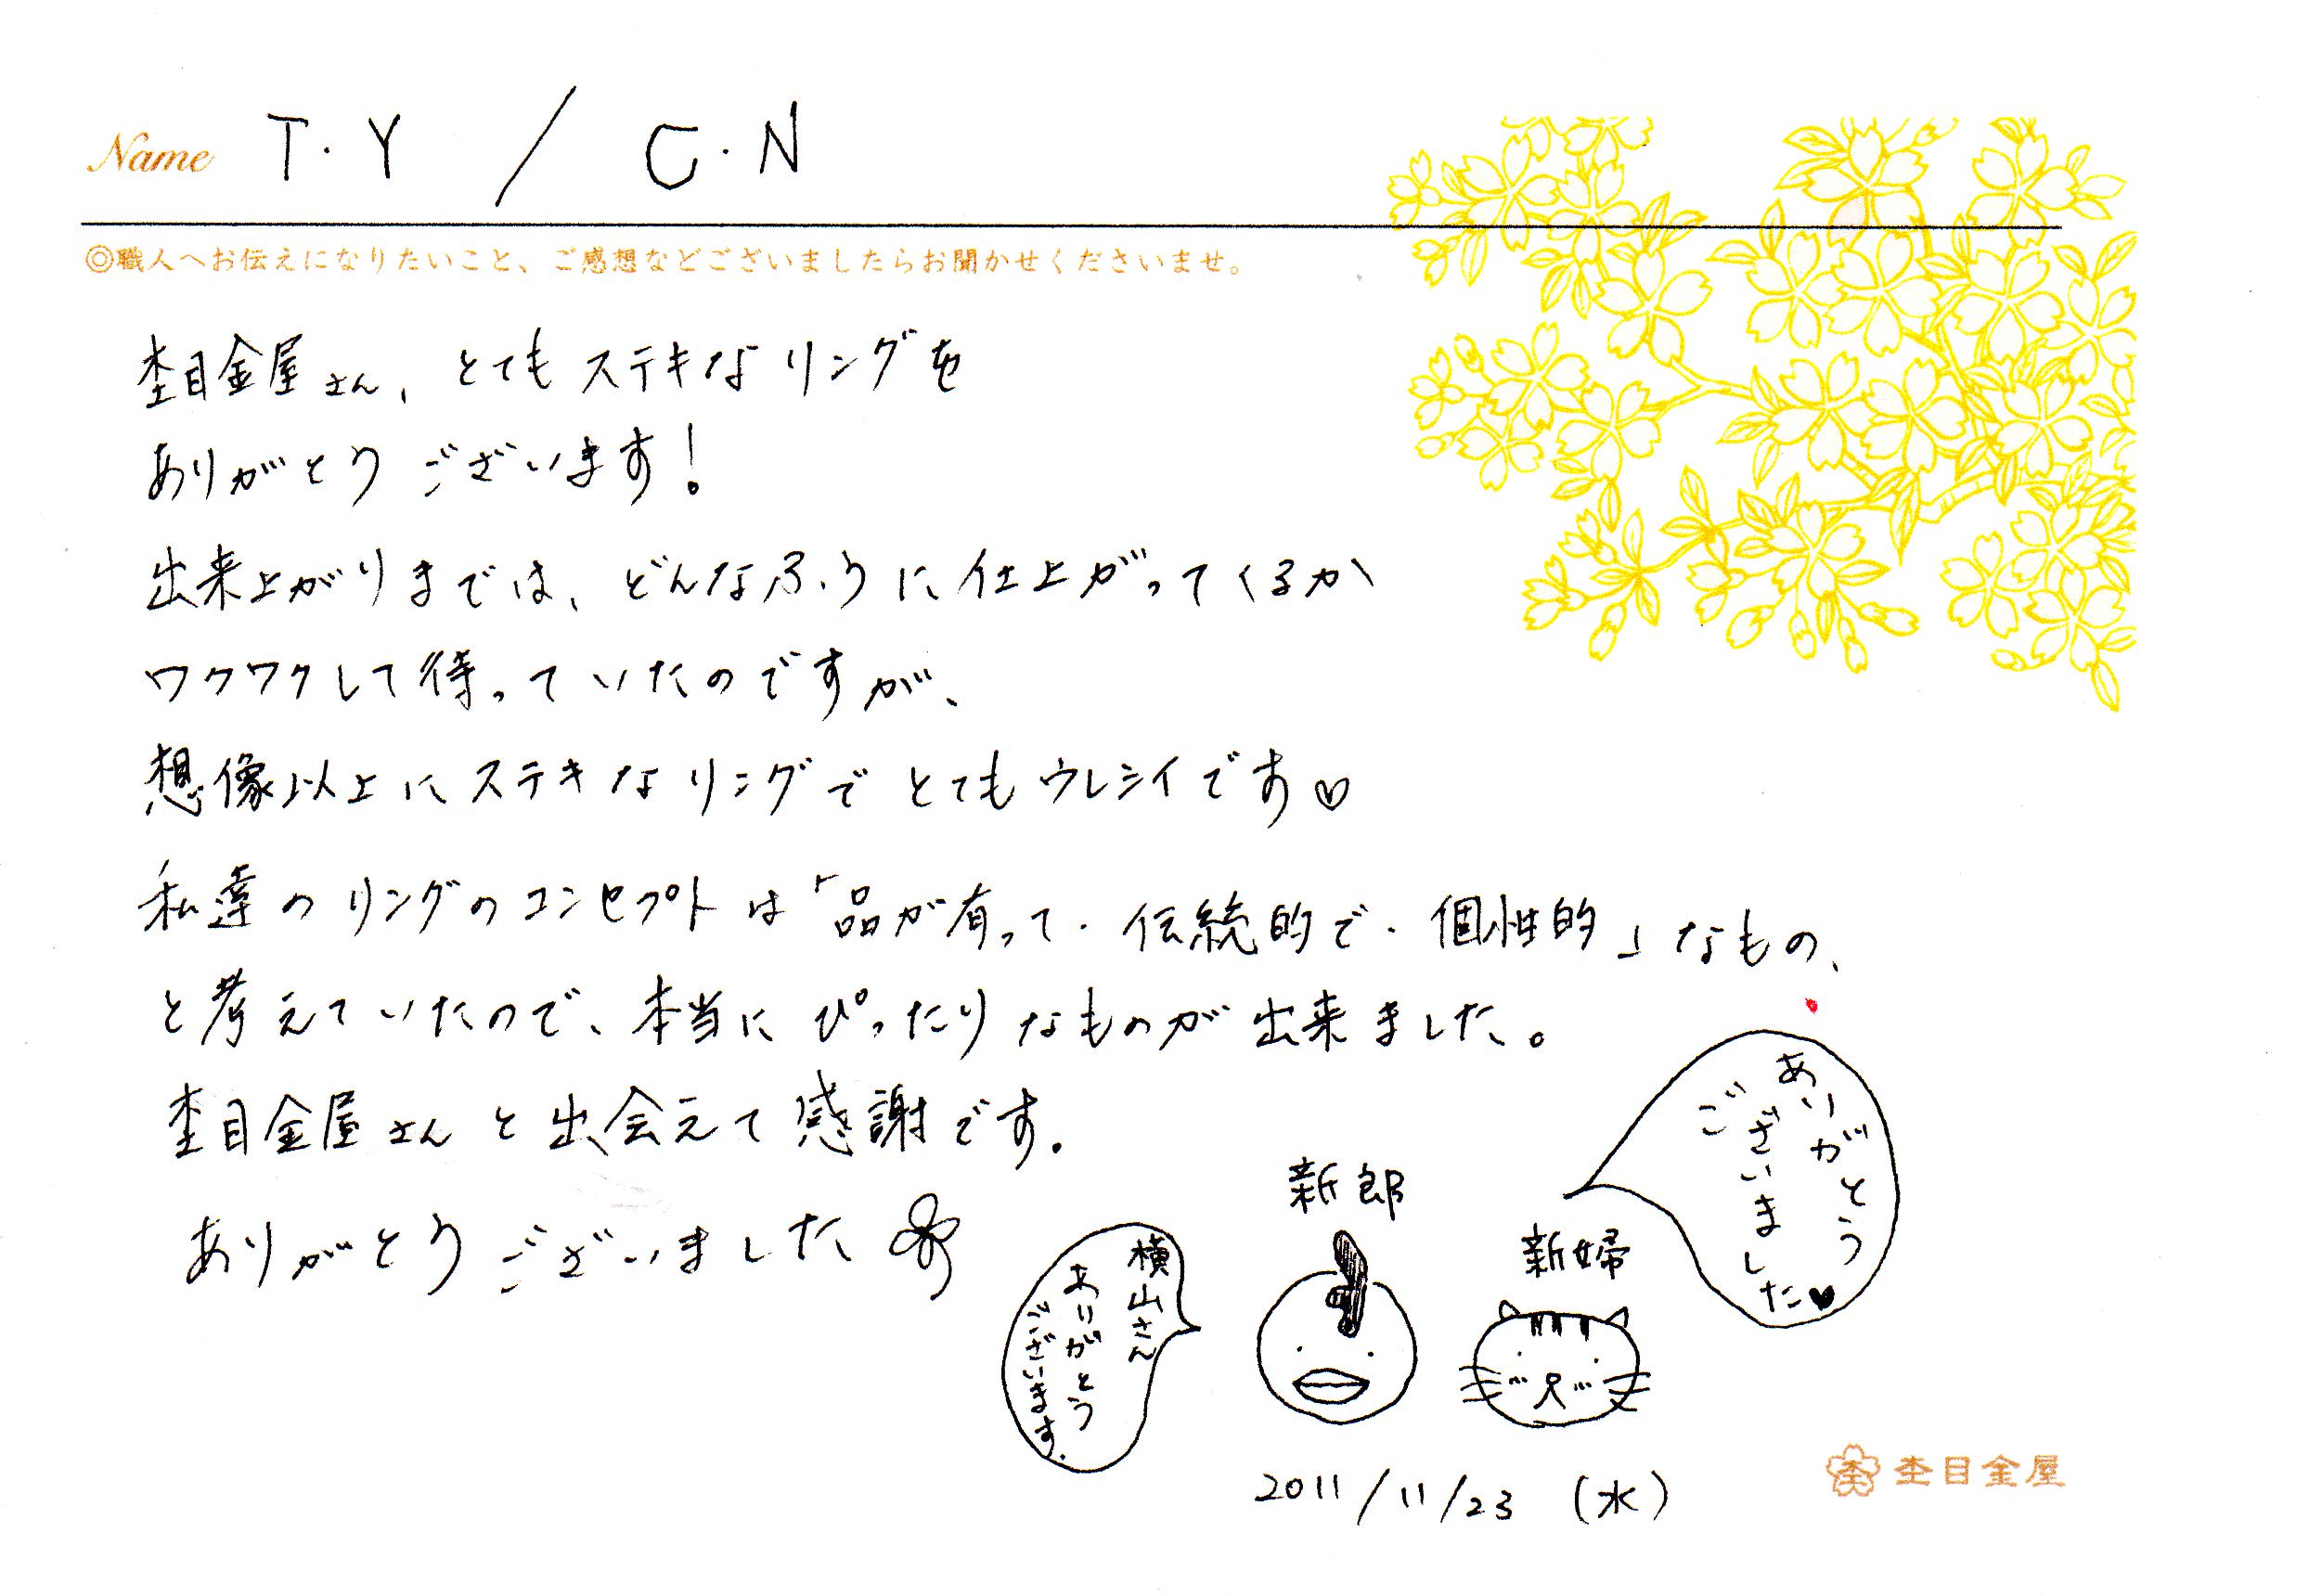 Name T・Y / C・N
◎職人へお伝えになりたいこと、ご感想などございましたらお聞かせくださいませ。
杢目金屋さん、とてもステキなリングを
ありがとうございます！
出来上がりまでは、どんなふうに仕上がってくるか
ワクワクして待っていたのですが、
想像以上にステキなリングでとてもウレシイです♡
私達のリングのコンセプトは「品が有って・伝統的で・個性的」なもの、
と考えていたので、本当にぴったりなものが出来ました。
杢目金屋さんと出会えて感謝です。
ありがとうございました
新郎
横山さん
ありがとう
ございます.
新婦
ありがとう
ございました♥
2011/11/23 (水)
杢目金屋